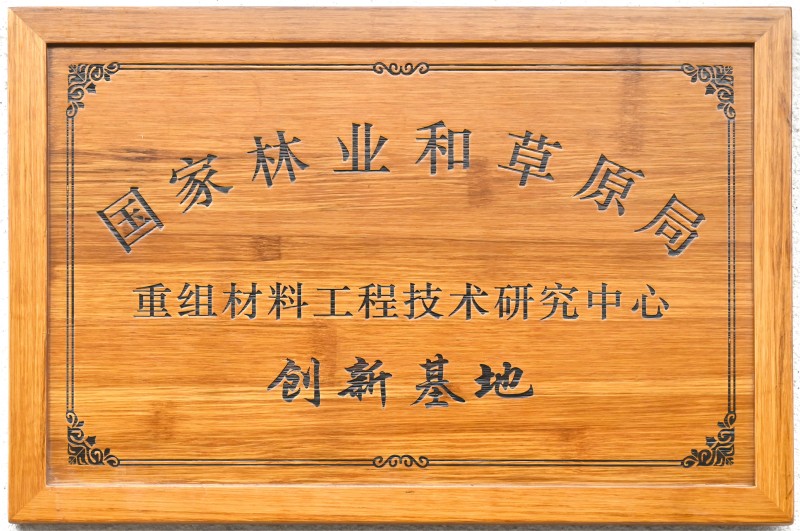 国家林业和草原局
重组材料工程技术研究中心
创新基地